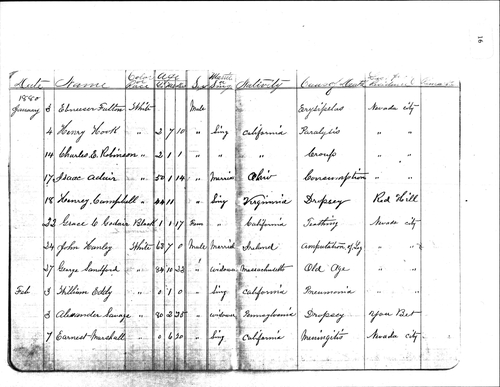 16
Date Name Color or Race Age Y. M. D. Sex Married or Sing Nativity Cause of Death Residence Remarks
1880
January 3 Ebenezer Fulton White Male Erysipelas Nevada city
4 Henry Hook " 2 7 10 " Sing California Paralysis " "
14 Charles E. Robinson " 2 1 1 " " " Croup " "
17 Isaac Adair " 50 1 14 " Married Ohio Consumption " "
18 Henry Campbell " 44 11 " Sing Virginnia Dropsey Red Hill
22 Grace C Black 1 1 17 Fem " California Teathing Nevada city
24 John Hanley White 63 7 0 Male Married Ireland Amputation of Leg " "
27 George Sandford " 84 10 23 " widower Massachusetts Old Age " "
Feb 3 William Eddy " 0 1 0 " Sing California Pneumonia " "
3 Alexander Savage " 80 2 25 " widower Pennsylvania Dropsey You Bet
7 Earnest Marshall " 0 6 20 " Sing California Meningitis Nevada city